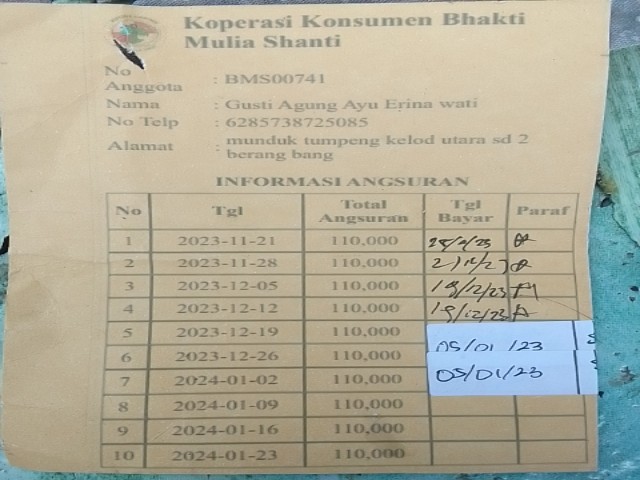 Koperasi Konsumen Bhakti
Mulia Shanti
No
Anggota : BMS00741
Nama : Gusti Agung Ayu Erina wati
No Telp : 6285738725085
Alamat : munduk tumpeng kelod utara sd 2
berang bang
INFORMASI ANGSURAN
No Tgl Total Angsuran Tgl Bayar Paraf
1 2023-11-21 110,000
2 2023-11-28 110,000
3 2023-12-05 110,000 19/12/23
4 2023-12-12 110,000 19/12/23
5 2023-12-19 110,000 05/01/23
6 2023-12-26 110,000
7 2024-01-02 110,000 05/01/23
8 2024-01-09 110,000
9 2024-01-16 110,000
10 2024-01-23 110,000